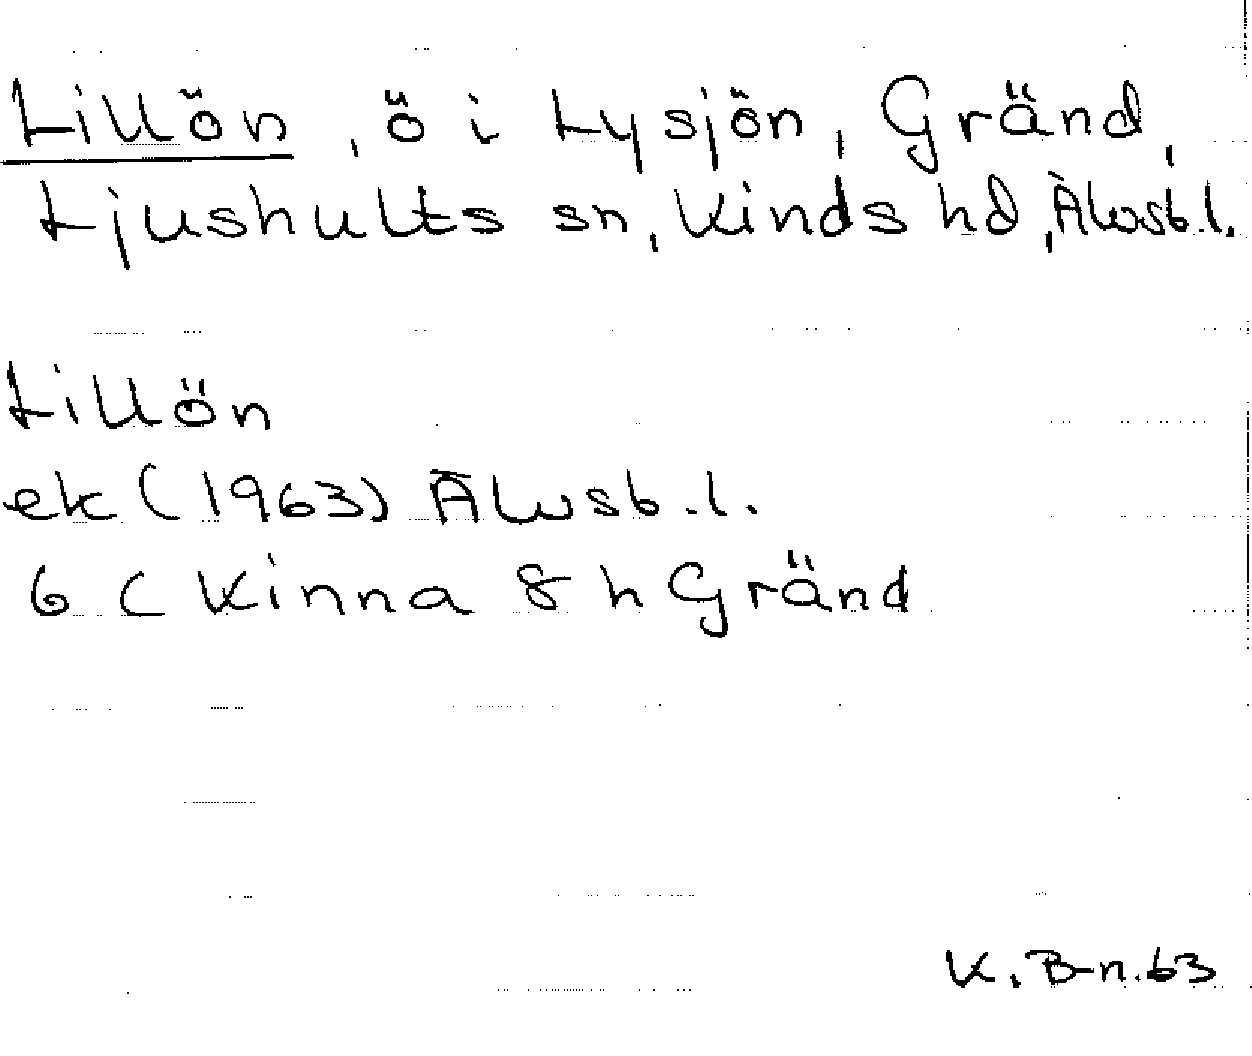 Lillön, ö i Lysjön, Gränd,
Ljushults sn, Kinds hd, Älvsb.l.
Lillön
ek (1963) Älvsb.l.
6 C Kinna 8 h Gränd
K. B-n. 63